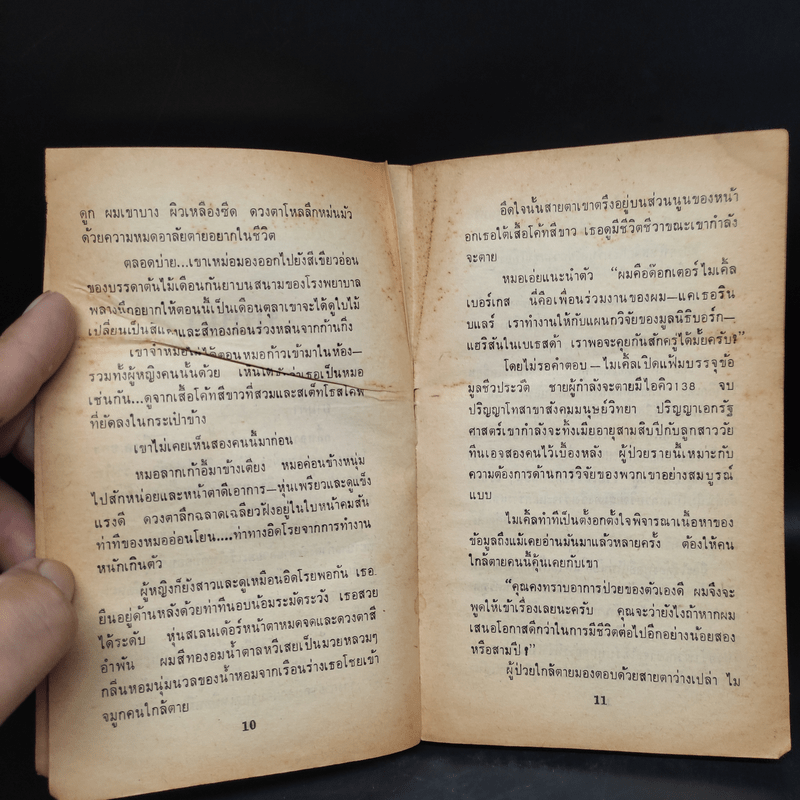 ดูก ผมเขาบาง ผิวเหลืองซีด ดวงตาโหลลึกหม่นมัว
ด้วยความหมดอาลัยตายอยากในชีวิต
ตลอดบ่าย...เขาเหม่อมองออกไปยังสีเขียวอ่อน
ของบรรดาต้นไม้เดือนกันยาบนสนามของโรงพยาบาล
พลางนึกอยากให้ตอนนี้เป็นเดือนตุลาเขาจะได้ดูใบไม้
เปลี่ยนเป็นสีแดงและสีทองก่อนร่วงหล่นจากก้านกิ่ง
เขาจำหมอไม่ได้ตอนหมอก้าวเข้ามาในห้อง—
รวมทั้งผู้หญิงคนนั้นด้วย เธอเป็นหมอ
เช่นกัน...ดูจากเสื้อโค้ทสีขาวที่สวมและสเต็ทโธสโคพ
ที่ยัดลงในกระเป๋าข้าง
เขาไม่เคยเห็นสองคนนี้มาก่อน
หมอลากเก้าอี้มาข้างเตียง หมอค่อนข้างหนุ่ม
ไปสักหน่อยและหน้าตาดีเอาการ—หุ่นเพรียวและดูแข็ง
แรงดี ดวงตาลึกฉลาดเฉลียวฝังอยู่ในใบหน้าคมสัน
ท่าทีของหมออ่อนโยน....ท่าทางอิดโรยจากการทำงาน
หนักเกินตัว
ผู้หญิงก็ยังสาวและดูเหมือนอิดโรยพอกัน เธอ
ยืนอยู่ด้านหลังด้วยท่าทีนอบน้อมระมัดระวัง เธอสวย
ได้ระดับ หุ่นสเลนเด้อร์หน้าตาหมดจดและดวงตาสี
อำพัน ผมสีทองอมน้ำตาลหวีเสยเป็นมวยหลวมๆ
กลิ่นหอมนุ่มนวลของน้ำหอมจากเรือนร่างเธอโชยเข้า
จมูกคนใกล้ตาย
10
อึดใจนั้นสายตาเขาตรึงอยู่บนส่วนนูนของหน้า
อกเธอใต้เสื้อโค้ทสีขาว เธอดูมีชีวิตชีวาขณะเขากำลัง
จะตาย
หมอเอ่ยแนะนำตัว “ผมคือด๊อกเตอร์ไมเคิ้ล
เบอร์เกส นี่คือเพื่อนร่วมงานของผม—แคเธอริน
บแลร์ เราทำงานให้กับแผนกวิจัยของมูลนิธิบอร์ก—
แฮริสันในเบเธสด้า เราพอจะคุยกันสักครู่ได้มั้ยครับ?”
โดยไม่รอคำตอบ—ไมเคิ้ลเปิดแฟ้มบรรจุข้อ
มูลชีวประวัติ ชายผู้กำลังจะตายมีไอคิว138 จบ
ปริญญาโทสาขาสังคมมนุษย์วิทยา ปริญญาเอกรัฐ
ศาสตร์เขากำลังจะทิ้งเมียอายุสามสิบปีกับลูกสาววัย
ทีนเอจสองคนไว้เบื้องหลัง ผู้ป่วยรายนี้เหมาะกับ
ความต้องการด้านการวิจัยของพวกเขาอย่างสมบูรณ์
แบบ
ไมเคิ้ลทำทีเป็นตั้งอกตั้งใจพิจารณาเนื้อหาของ
ข้อมูลถึงแม้เคยอ่านมันมาแล้วหลายครั้ง ต้องให้คน
ใกล้ตายคนนี้คุ้นเคยกับเขา
“คุณคงทราบอาการป่วยของตัวเองดี ผมจึงจะ
พูดให้เข้าเรื่องเลยนะครับ คุณจะว่ายังไงถ้าหากผม
เสนอโอกาสดีกว่าในการมีชีวิตต่อไปอีกอย่างน้อยสอง
หรือสามปี?”
ผู้ป่วยใกล้ตายมองตอบด้วยสายตาว่างเปล่า ไม
11